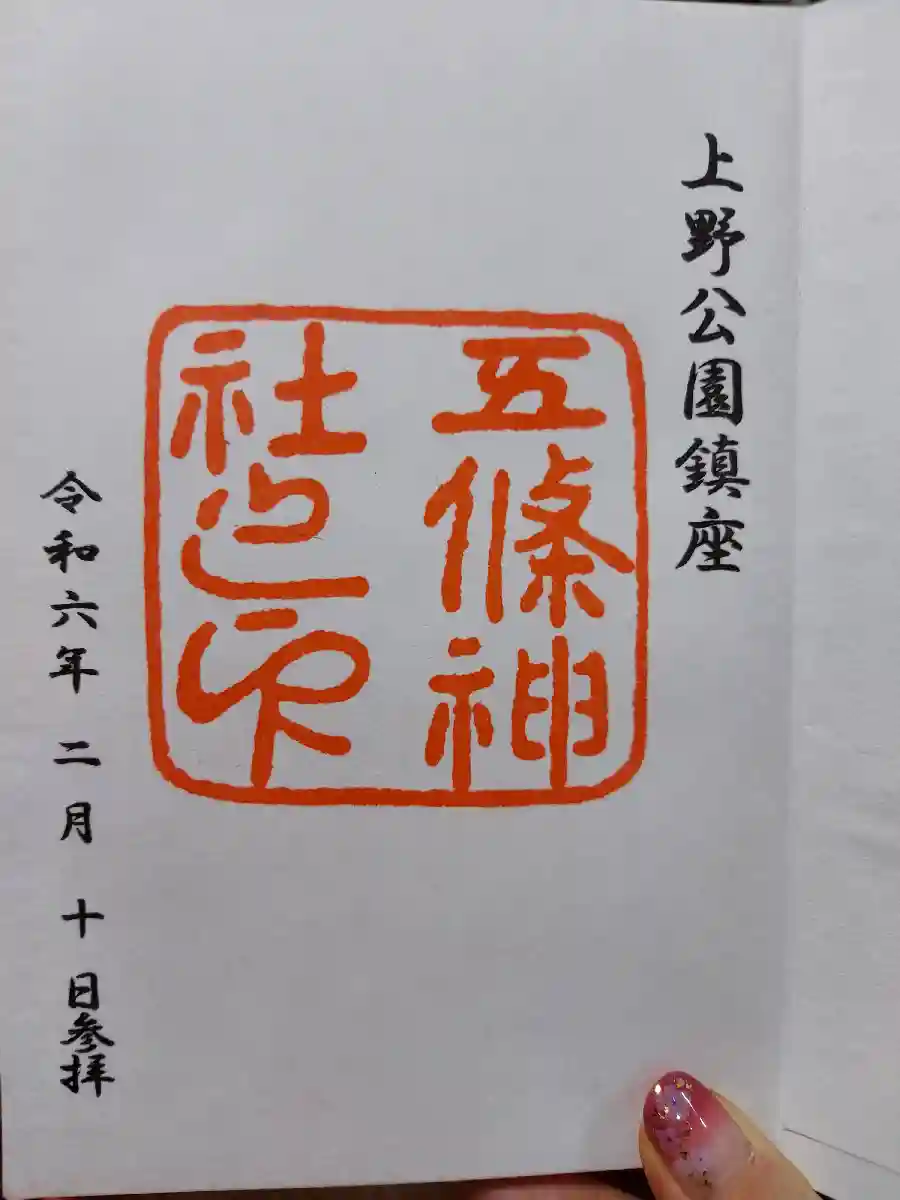 上野公園鎮座
五條神
社之印
令和六年 二月 十 日参拝